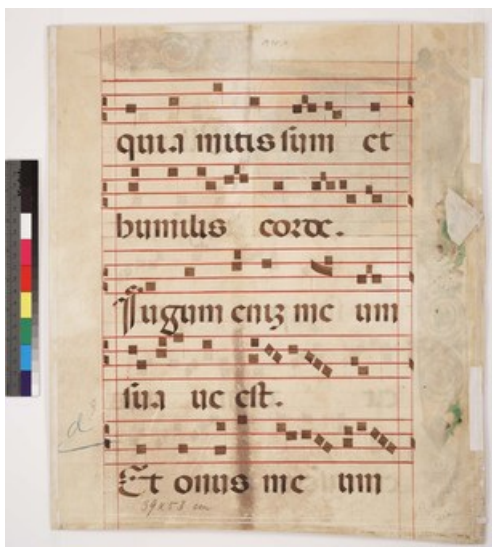 quia mitis sum et
humilis corde.
Iugum eniz me um
sua ue est.
d
Et onus me um
39x53 cm